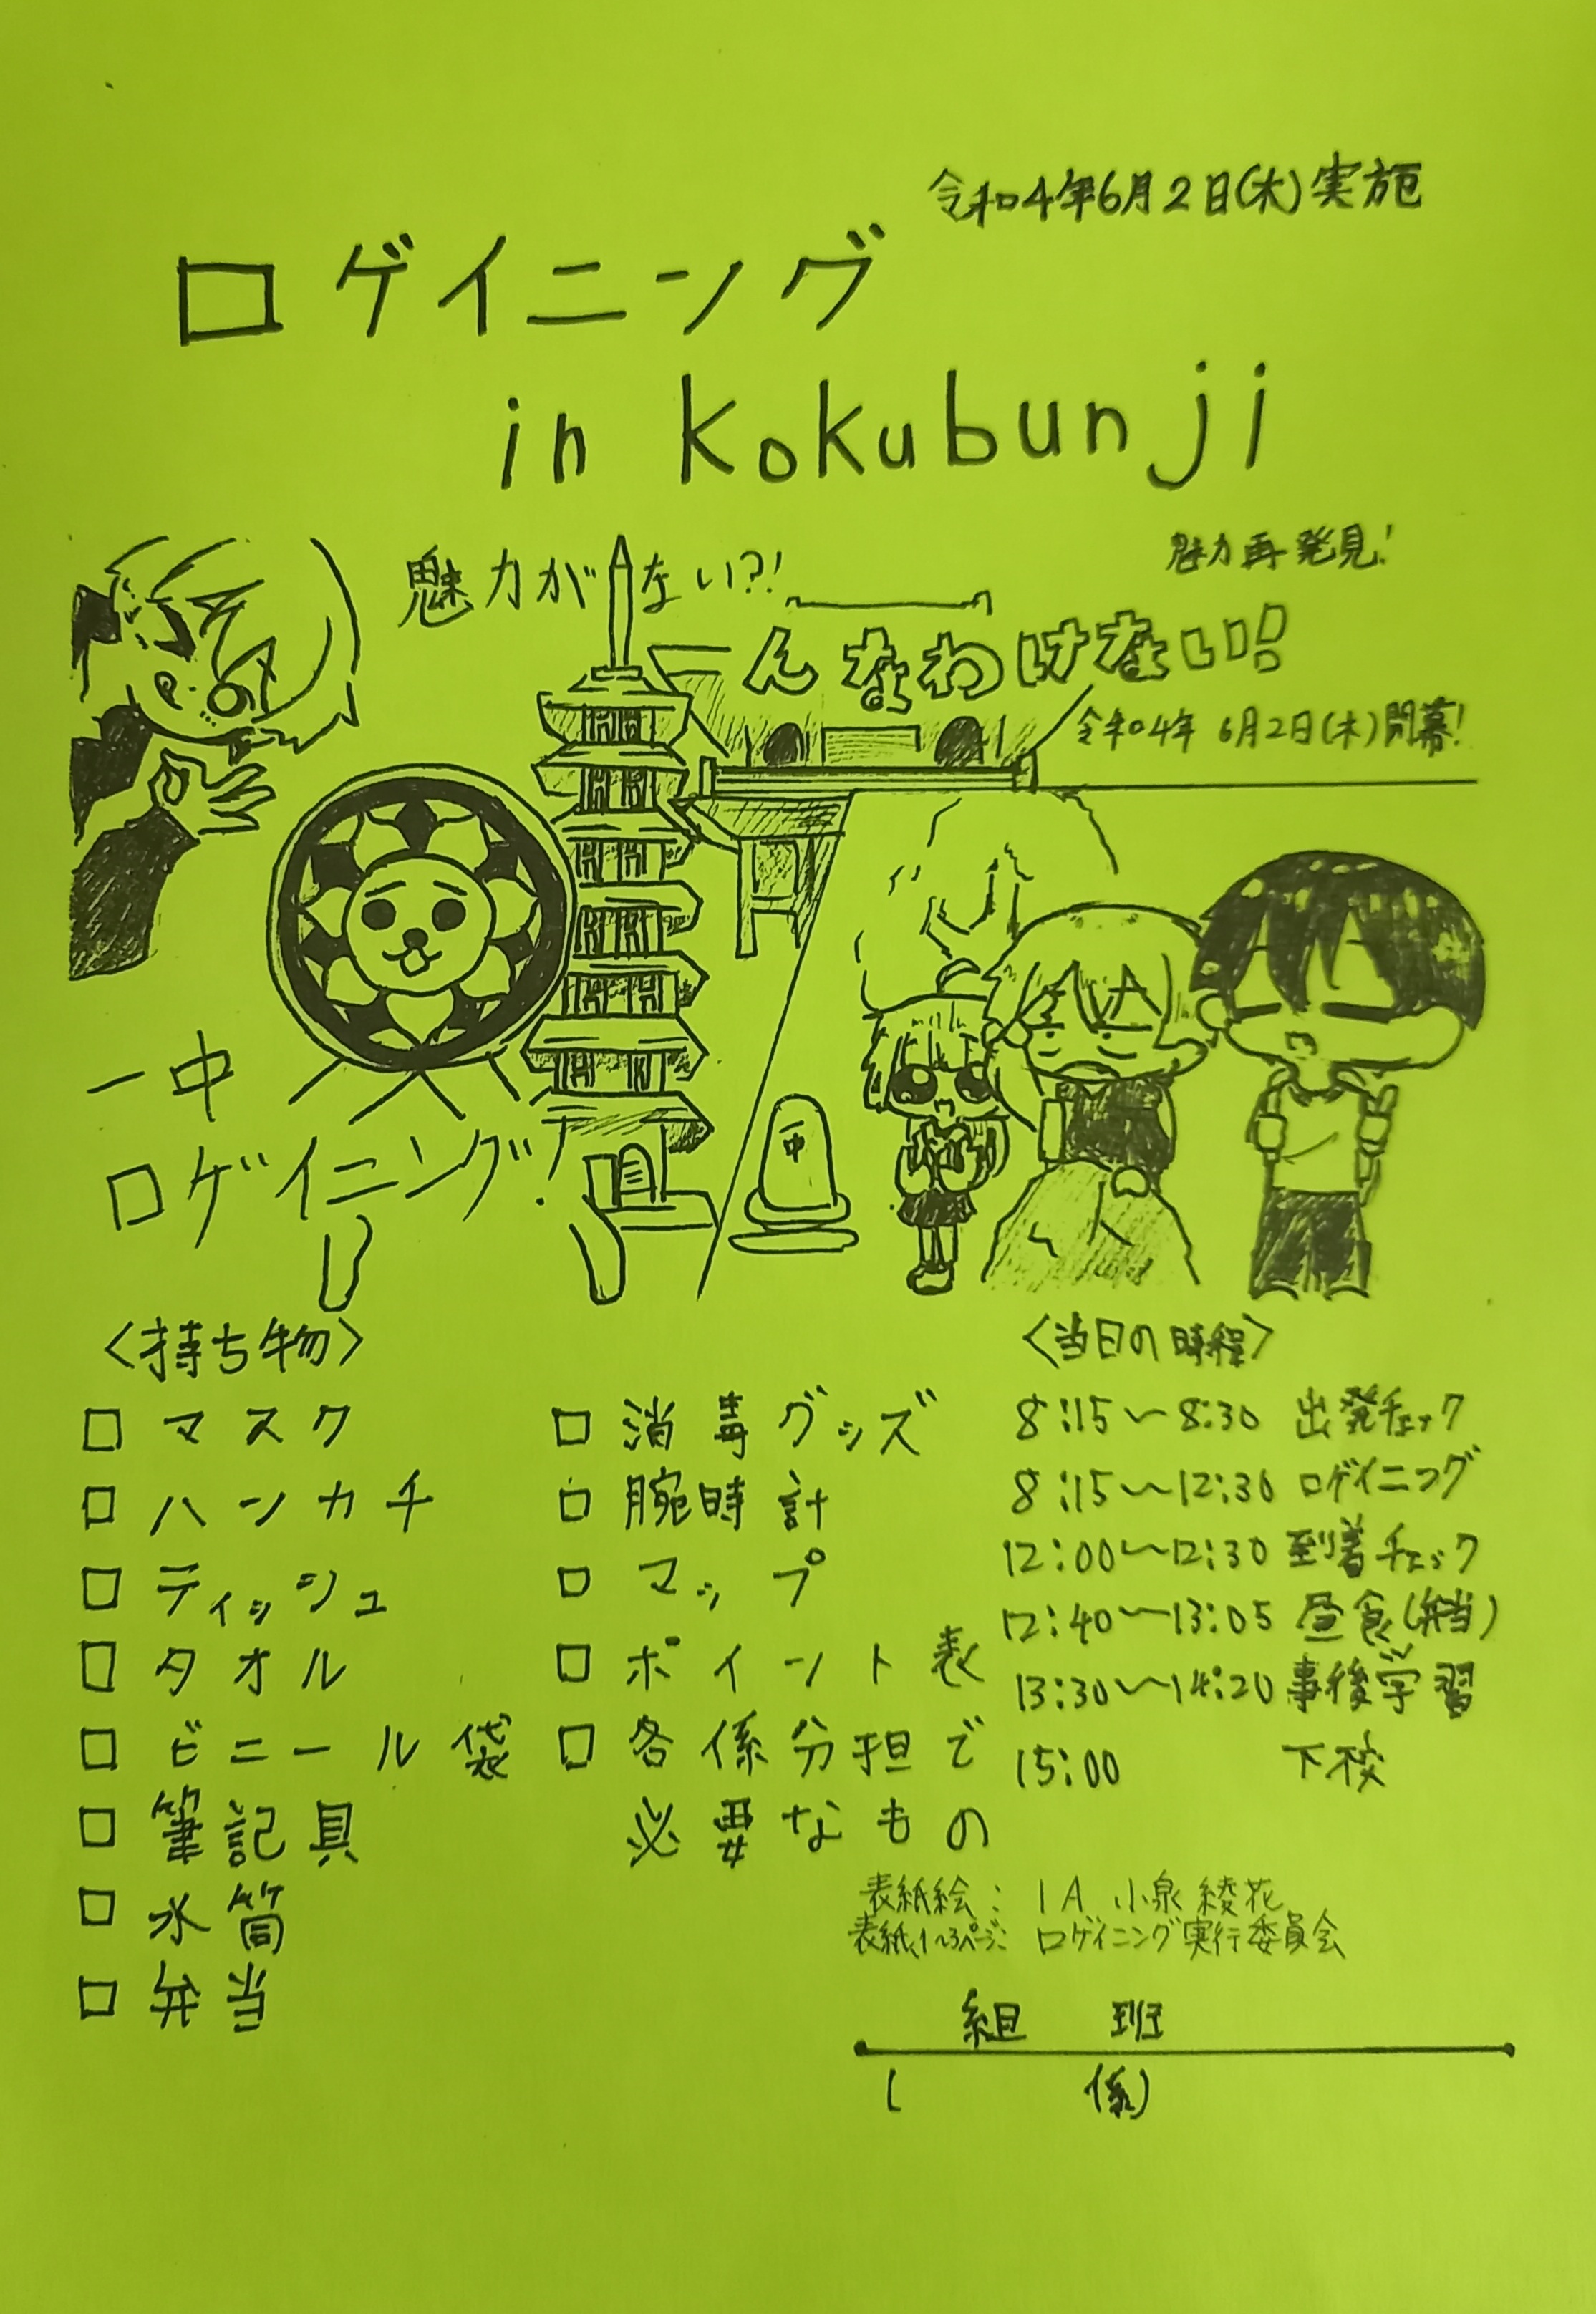 令和4年6月2日(木)実施
ロゲイニング
in kokubunji
魅力がない?!
魅力再発見!
んなわけない!
令和4年 6月2日(木)開幕!
一中
ロゲイニング!
一中
<持ち物>
□ マスク
□ ハンカチ
□ ティッシュ
□ タオル
□ ビニール袋
□ 筆記具
□ 水筒
□ 弁当
□ 消毒グッズ
□ 腕時計
□ マップ
□ ポイント表
□ 各係分担で
必要なもの
<当日の時程>
8:15〜8:30 出発チェック
8:15〜12:30 ロゲイニング
12:00〜12:30 到着チェック
12:40〜13:05 昼食(弁当)
13:30〜14:20 事後学習
15:00 下校
表紙絵: 1A 小泉 綾花
表紙、1~3ページ: ロゲイニング実行委員会
組 班
( 係)